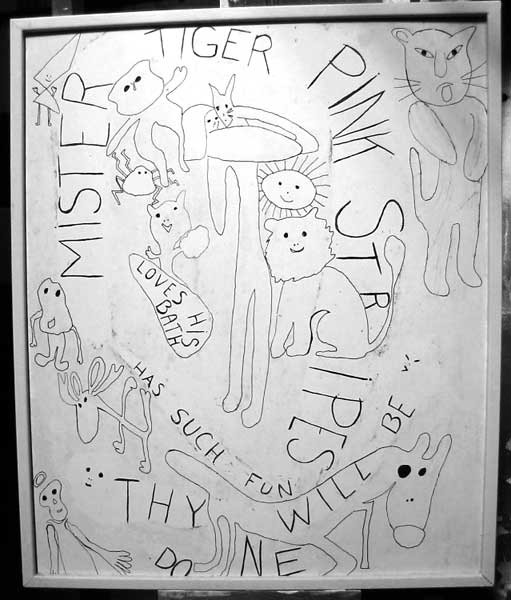 MISTER
TIGER
PINK
STRIPES
LOVES HIS
BATH
HAS SUCH FUN
THY WILL BE
DONE